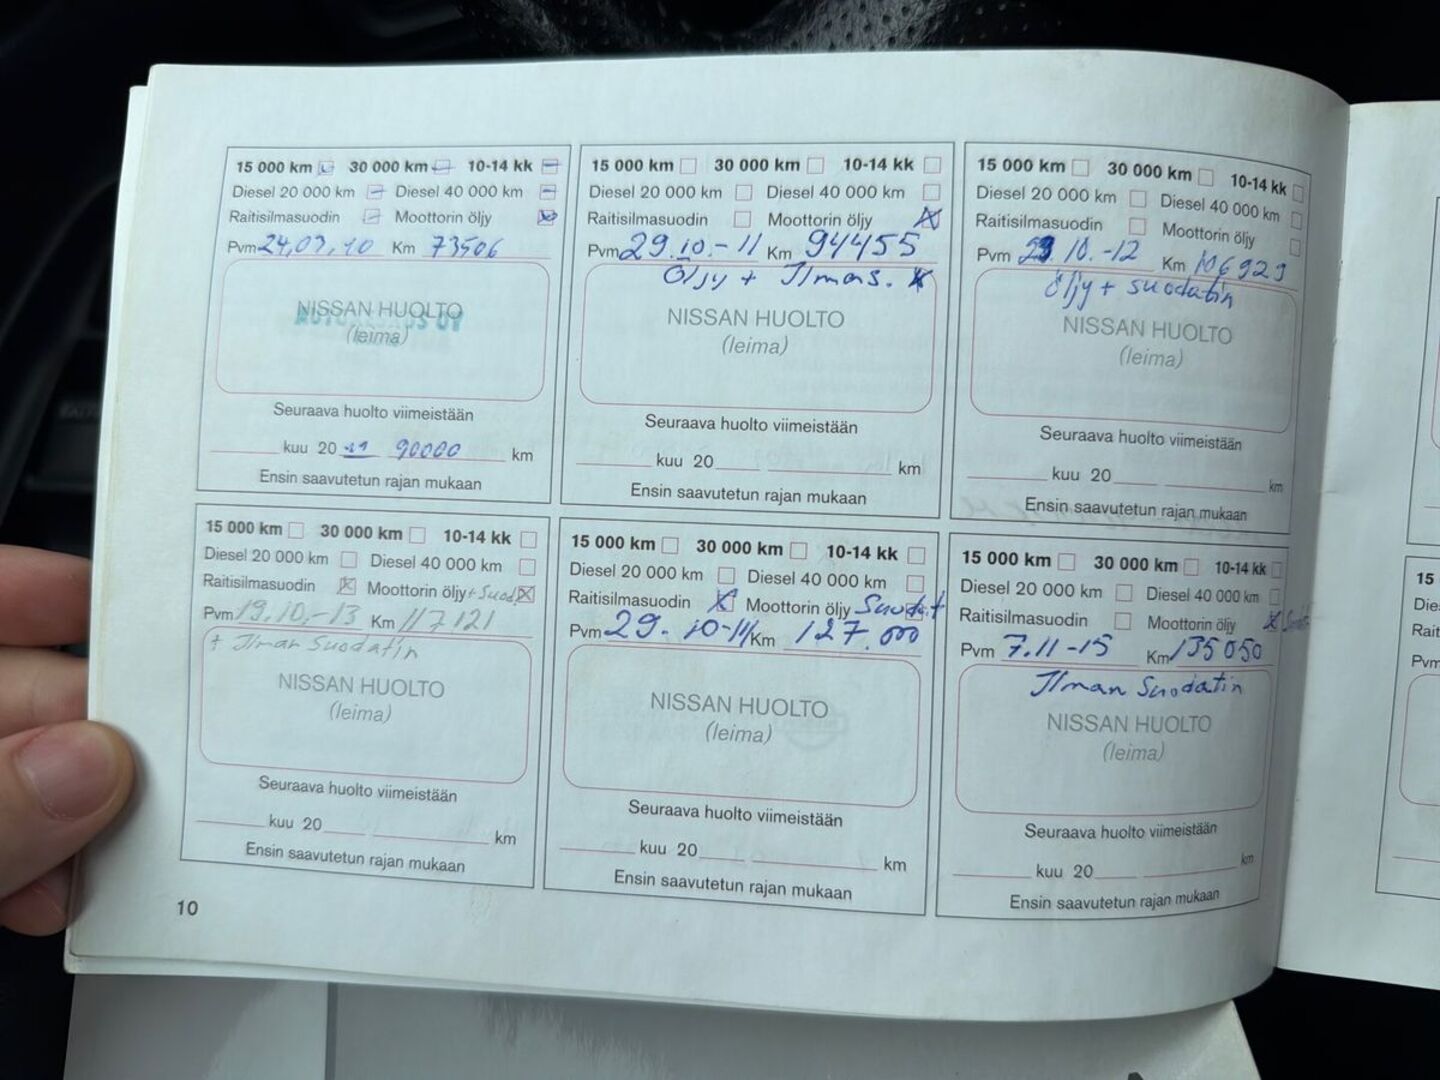 15 000 km 30 000 km 10-14 kk
Diesel 20 000 km Diesel 40 000 km
Raitisilmasuodin Moottorin öljy
Pvm 24.03.10 Km 73506
NISSAN HUOLTO
(leima)
Seuraava huolto viimeistään
kuu 20 11 90000 km
Ensin saavutetun rajan mukaan
15 000 km 30 000 km 10-14 kk
Diesel 20 000 km Diesel 40 000 km
Raitisilmasuodin Moottorin öljy
Pvm 29.10.-11 Km 94455
Öljy + Ilmas.
NISSAN HUOLTO
(leima)
Seuraava huolto viimeistään
kuu 20 km
Ensin saavutetun rajan mukaan
15 000 km 30 000 km 10-14 kk
Diesel 20 000 km Diesel 40 000 km
Raitisilmasuodin Moottorin öljy
Pvm 10.-12 Km 106929
öljy + suodatin
NISSAN HUOLTO
(leima)
Seuraava huolto viimeistään
kuu 20 km
Ensin saavutetun rajan mukaan
15 000 km 30 000 km 10-14 kk
Diesel 20 000 km Diesel 40 000 km
Raitisilmasuodin Moottorin öljy + Suod.
Pvm 19.10.-13 Km 117121
+ Ilman Suodatin
NISSAN HUOLTO
(leima)
Seuraava huolto viimeistään
kuu 20 km
Ensin saavutetun rajan mukaan
15 000 km 30 000 km 10-14 kk
Diesel 20 000 km Diesel 40 000 km
Raitisilmasuodin Moottorin öljy
Pvm 29.10-14 Km 127.000
NISSAN HUOLTO
(leima)
Seuraava huolto viimeistään
kuu 20 km
Ensin saavutetun rajan mukaan
15 000 km 30 000 km 10-14 kk
Diesel 20 000 km Diesel 40 000 km
Raitisilmasuodin Moottorin öljy
Pvm 7.11-15 Km 135050
Ilman Suodatin
NISSAN HUOLTO
(leima)
Seuraava huolto viimeistään
kuu 20 km
Ensin saavutetun rajan mukaan
10
15
Pvm